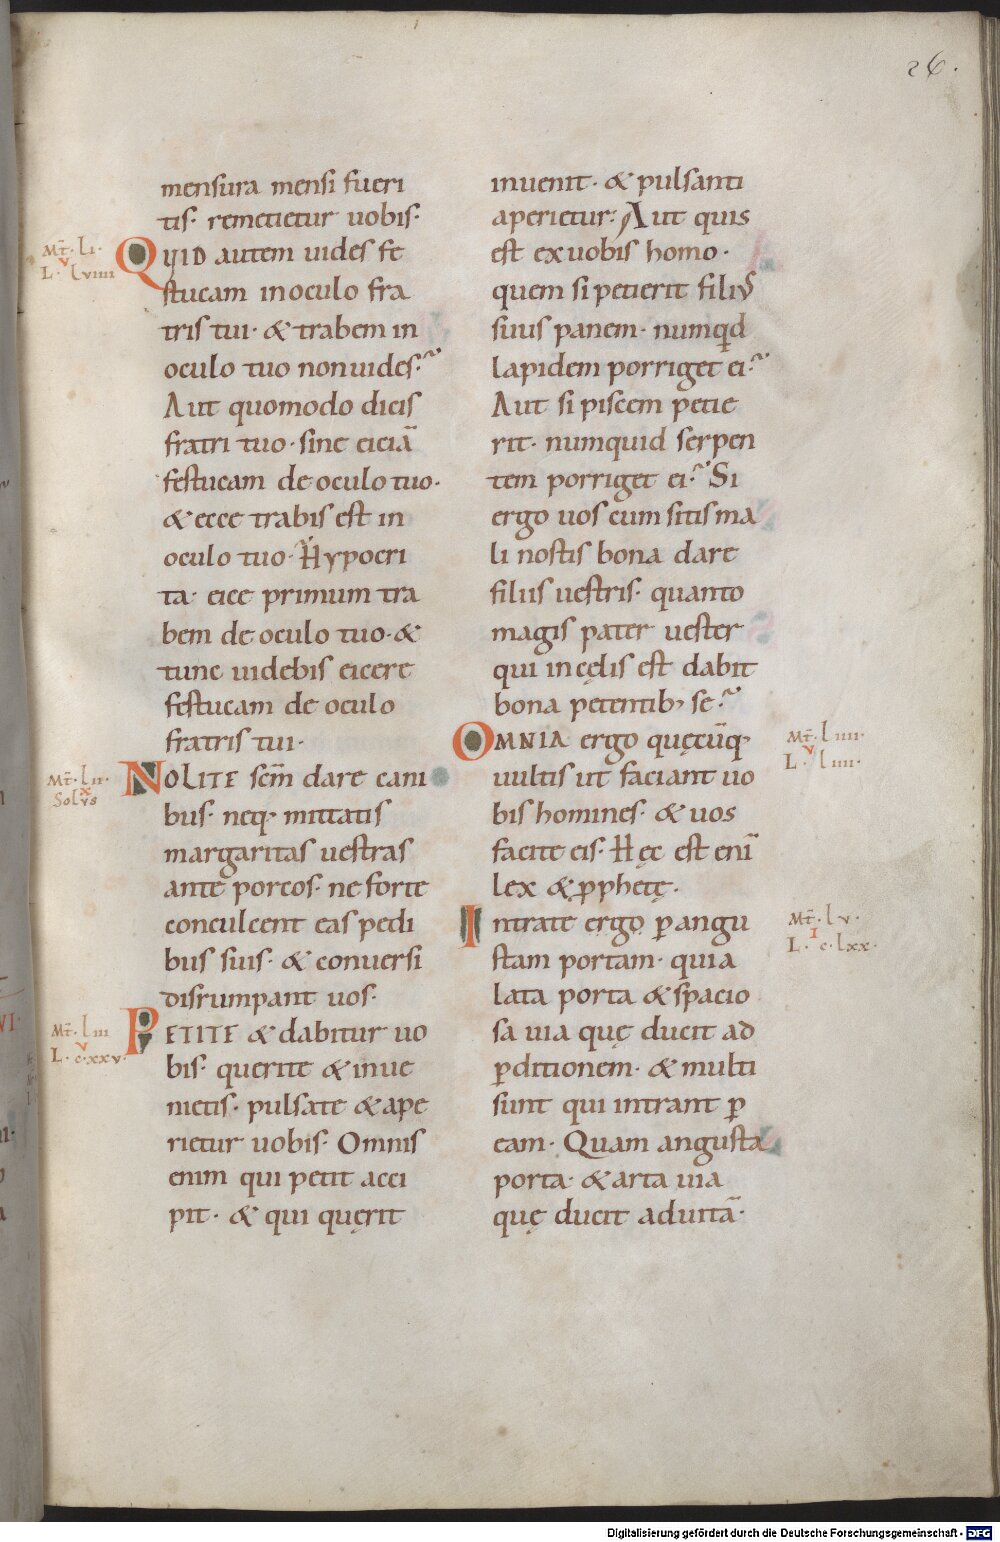 26.
mensura mensi fueri
tis· remetietur uobis·
Mт̄· li·
v
L· lviiii
QUID autem uides fe
stucam inoculo fra
tris tui· & trabem in
oculo tuo nonuides·
Aut quomodo dicis
fratri tuo· sine eiciā
festucam de oculo tuo·
& ecce trabis est in
oculo tuo· Hypocri
ta· eice primum tra
bem de oculo tuo· &
tunc uidebis eicere
festucam de oculo
fratris tui·
Mт̄· lii·
x
Solvs
NOLITE scm̄ dare cani
bus· neq· mittatis
margaritas uestras
ante porcos· ne forte
conculcent eas pedi
bus suis· & conuersi
disrumpant uos·
Mт̄· liii
v
L· c·xxv·
PETITE & dabitur uo
bis· querite & inue
nietis· pulsate & ape
rietur uobis· Omnis
enim qui petit acci
pit· & qui quęrit
inuenit· & pulsanti
aperietur· Aut quis
est exuobis homo·
quem si petierit filiꝰ
suus panem· numqd
lapidem porriget ei·
Aut si piscem petie
rit· numquid serpen
tem porriget ei· Si
ergo uos cum sitis ma
li nostis bona dare
filiis uestris· quanto
magis pater uester
qui incęlis est dabit
bona petentib; se·
Mт̄· liiii·
v
L· liii·
OMNIA ergo quęcūq·
uultis ut faciant uo
bis homines· & uos
facite eis· Hęc est enī
lex & ꝓphetę·
Mт̄· lv·
I
L· c·lxx·
Intrate ergo ꝑ angu
stam portam· quia
lata porta & spacio
sa uia quę ducit ad
ꝑditionem· & multi
sunt qui intrant ꝑ
eam· Quam angusta
porta· & arta uia
quę ducit aduitā·
Digitalisierung gefördert durch die Deutsche Forschungsgemeinschaft - DFG